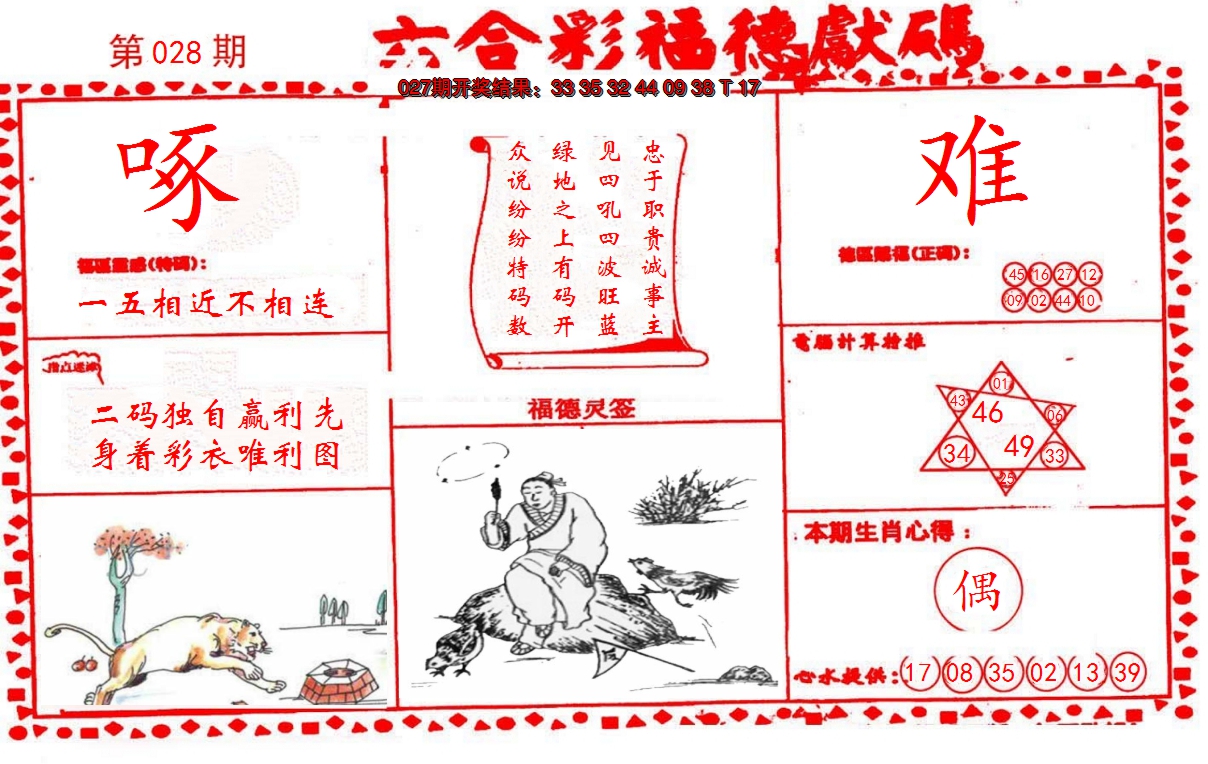 第 028 期
六合彩福德獻碼
027期开奖结果：33 35 32 44 09 38 T 17
啄
(特碼)：
一五相近不相连
指点迷津
二码独自赢利先
身着彩衣唯利图
忠于职贵诚事主
见四吼四波旺蓝
绿地之上有码开
众说纷纷特码数
福德灵签
难
(正碼)：
45 16 27 12
09 02 44 10
電腦計算抢推
01
43 46 06
34 49 33
25
本期生肖心得：
偶
心水提供：17 08 35 02 13 39